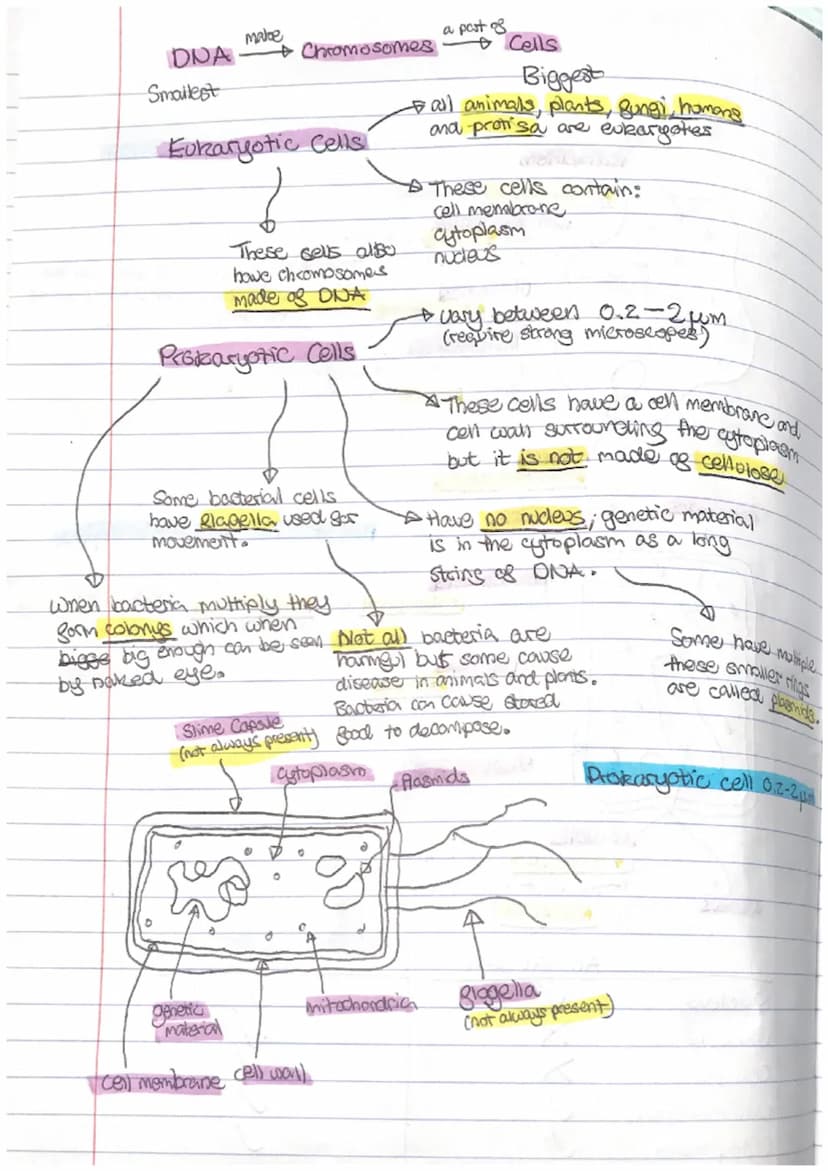 DNA make Chromosomes a part of Cells
Smallest
Biggest
Eukaryotic Cells
all animals, plants, fungi, humans
and protisa are eukaryotes
These cells contain:
cell membrane
cytoplasm
nucleus
These cells also
have chromosomes
made of DNA
Prokaryotic Cells
vary between 0.2-2μm
(require strong microscopes)
These cells have a cell membrane and
cell wall surrounding the cytoplasm
but it is not made of cellolose
Some bacterial cells
have flagella used for
movement.
Have no nucleus, genetic material
is in the cytoplasm as a long
string of DNA.
When bacteria multiply they
form colonys which when
big enough can be seen
by naked eye.
Not all bacteria are
harmful but some cause
disease in animals and plants.
Bacteria can cause stored
food to decompose.
Some have multiple
these smaller rings
are called plasmids.
Slime Capsule
(not always present)
cytoplasm
Plasmids
Prokaryotic cell 0.2-2μm
genetic
material
mitochondria
flggella
(not always present)
cell membrane
cell wall